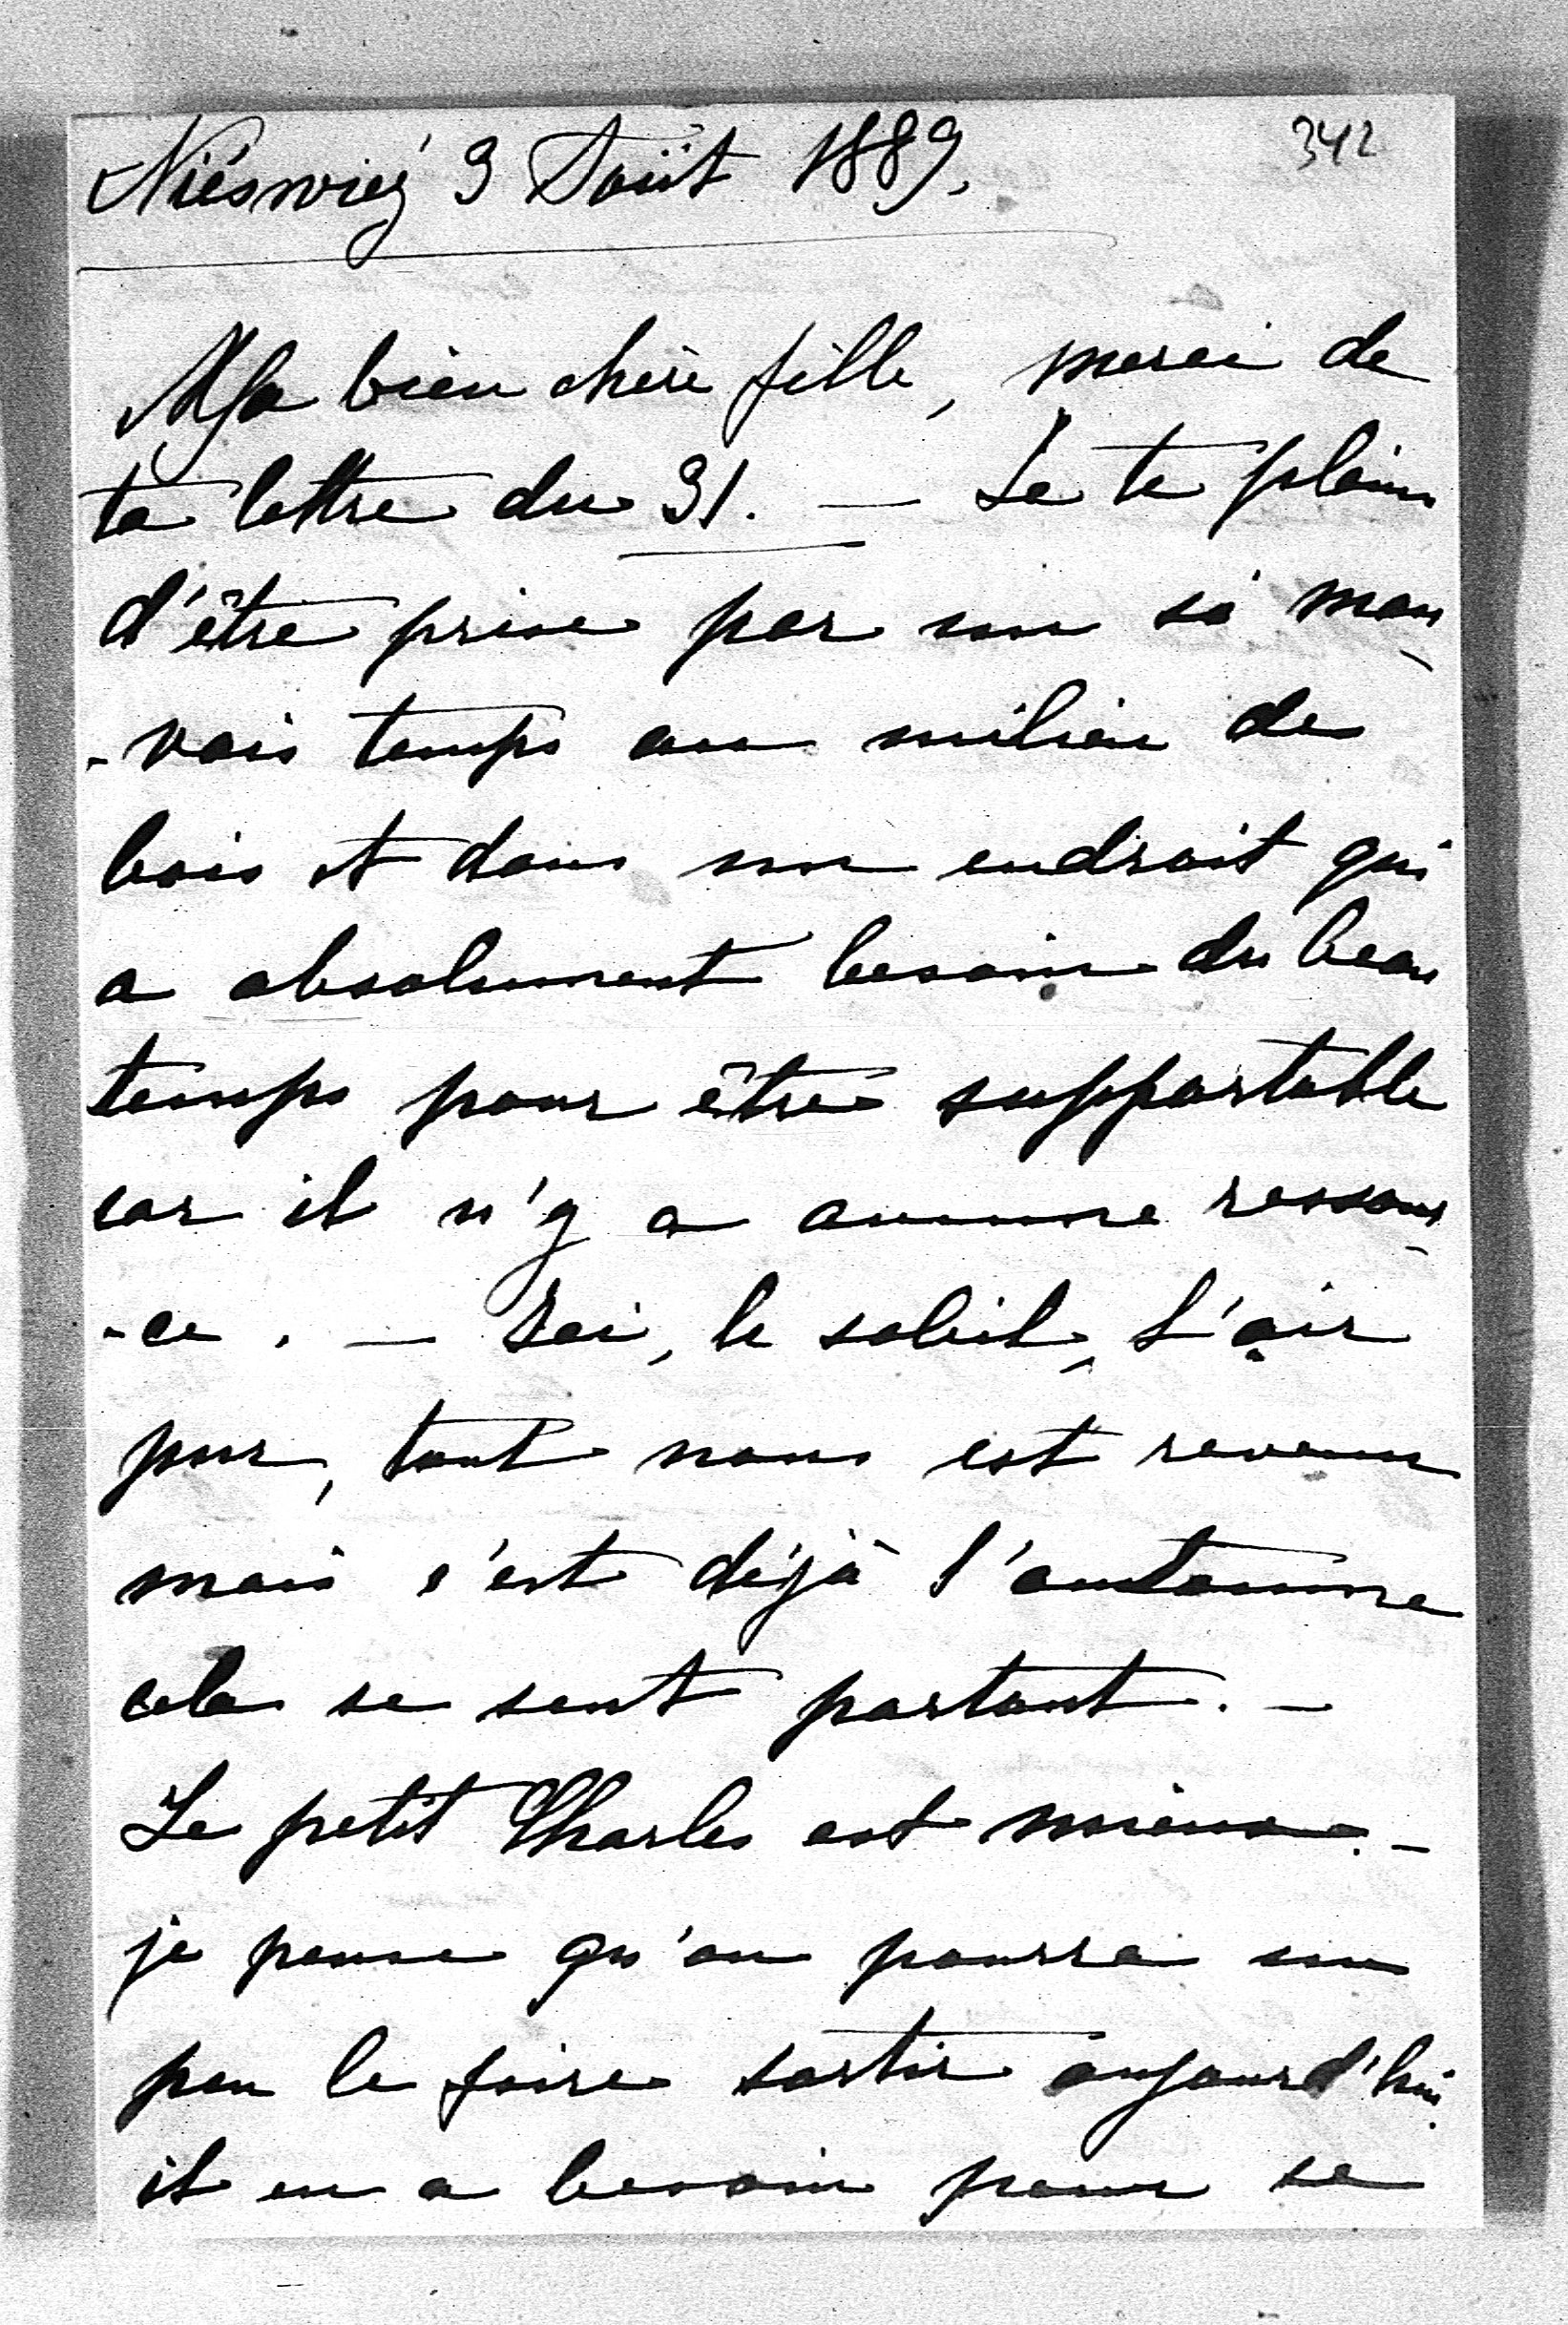 Niéswież 3 Août 1889.
342
Ma bien chère fille, merci de
ta lettre du 31. — Je te plains
d'être prise par un si mau
-vais temps au milieu des
bois et dans un endroit qui
a absolument besoin du beau
temps pour être supportable
car il n'y a aucune ressour
-ce. — Ici, le soleil, l'air
pur, tout nous est revenu
mais c'est déjà l'automne
cela se sent partout. —
Le petit Charles est mieux. —
je pense qu'on pourra un
peu le faire sortir aujourd'hui.
il en a besoin pour se